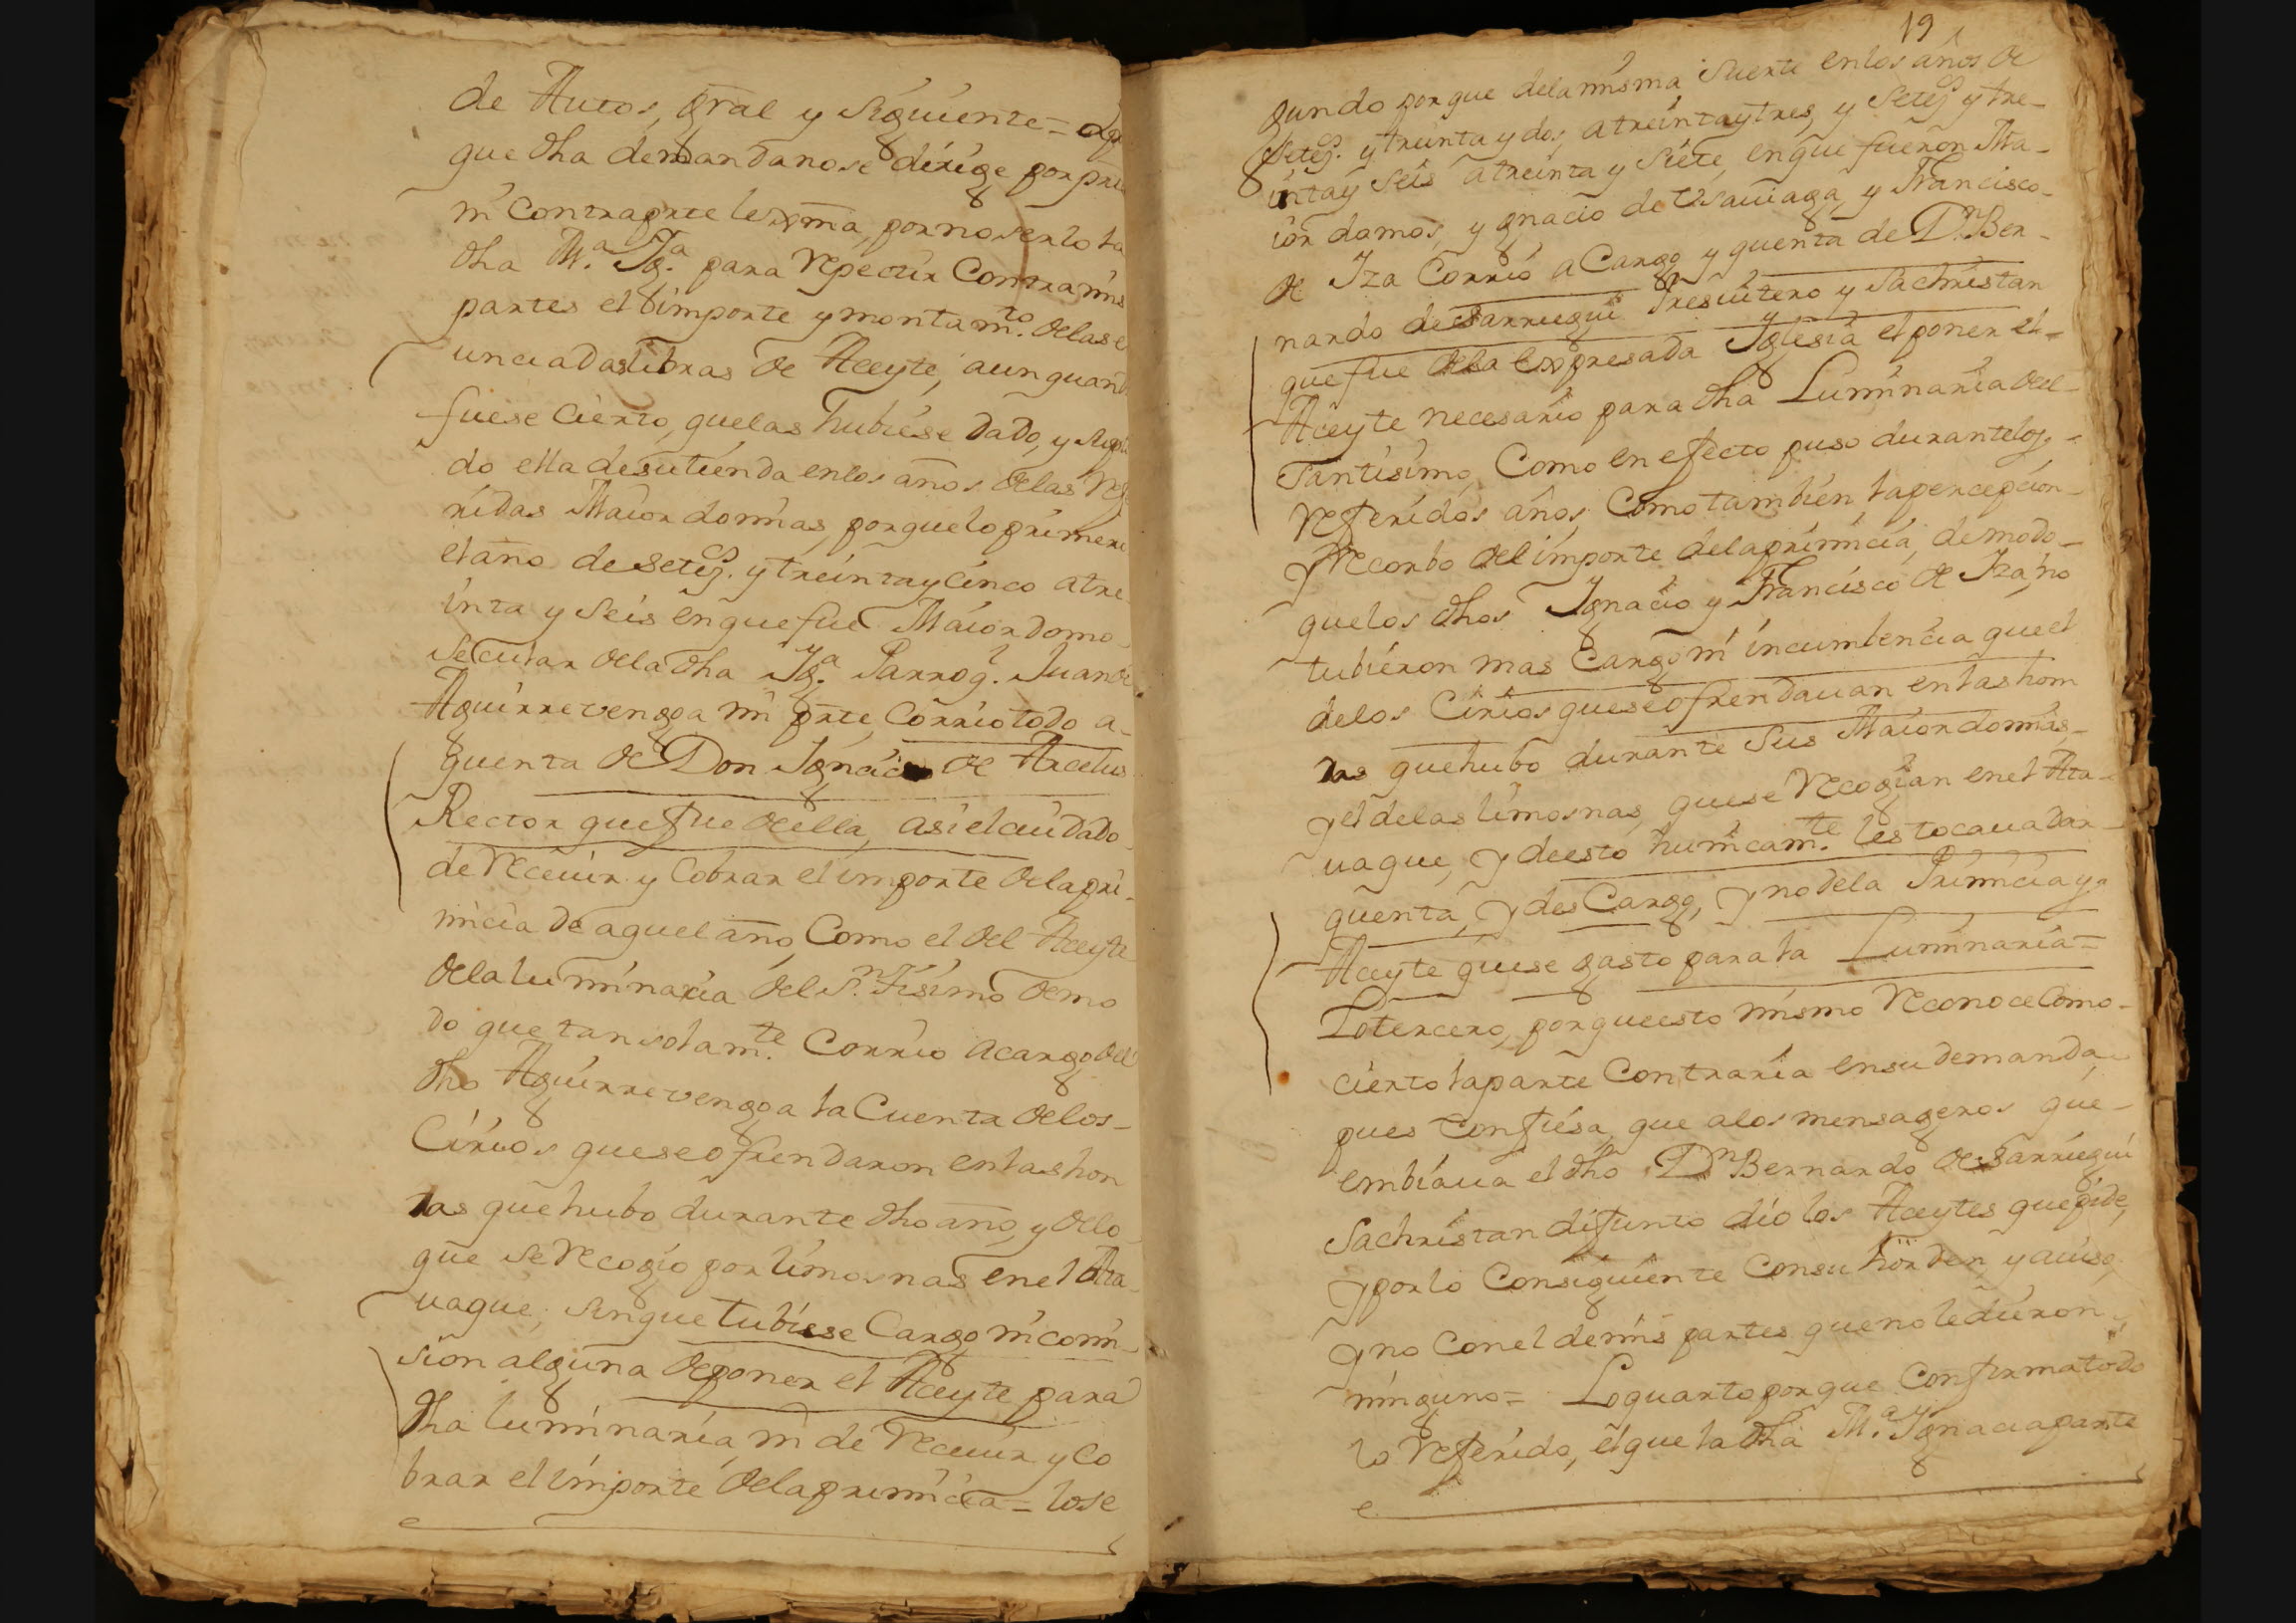 de Autos, gral y siguiente = Lo
que dha demanda no se dirige por pre
ni contra prte lexma, por no serlo la
dha M.a Ig.a para repectir Contra mis
partes el importe y montam.to de las e
unciadas libras de Aceyte, aun quand
fuese Cierto, que las hubiese dado, y supli
do ella de su tienda en los años de las refe
ridas Maiordomias, porque lo primero
el año de setez.s y treinta y cinco a tre
inta y seis en que fue Maiordomo
secular de la dha Ig.a Parroq.l Juan de
Aguirrevengoa mi prte, Corrio todo a
quenta de Don Ignacio de Arcelus
Rector que fue de ella, asi el cuidado
de receuir y Cobrar el importe de la pri
micia de aquel año, Como el del Aceyte
de la luminaria del S.n Tisimo de mo
do que tan solam.te Corrio a cargo del
dho Aguirrevengoa la Cuenta de los
Cirios que se ofrendaron en las hon
rras que hubo durante dho año, y de lo
que se recogio por limosnas en el Atta
uaque, sin que tubiese Cargo ni comi
sion alguna de poner el Aceyte para
dha luminaria, ni de receuir y Co
brar el importe de la primicia = lo se
19
gundo porque de la misma suerte en los años de
setez.s y treinta y dos, a treinta y tres, y setez.s y tre
inta y seis a treinta y siete, en que fueron Ma
iordamos, Ygnacio de Vsauiaga, y Francisco
de Iza Corrio a Cargo y quenta de D.n Ber
nardo de Sarriegui Presuitero y Sachristan
que fue de la expresada Iglesia el poner el
Aceyte necesario para dha Luminaria del
Santisimo, Como en efecto puso durante los
referidos años, Como tambien, la percepcion
y recorbo del importe de la primicia, de modo
que los dhos Ignacio y Francisco de Iza, no
tubieron mas Cargo ni incumbencia que el
de los Cirios que se ofrendauan en las hon
rras que hubo durante sus Maiordomias
y el de las limosnas, que se recogian en el Atta
uaque, y de esto hunicam.te les tocaua dar
quenta, y des Cargo, y no de la Primicia y
Aceyte que se gasto para la Luminaria =
Lo tercero, porque esto mismo reconoce Como
cierto la parte Contraria en su demanda,
pues Confiesa, que a los mensageros que
embiaua el dho D.n Bernardo de Sarriegui
Sachristan difunto dio los Aceytes que pide,
y por lo Consiguiente Con su horden, y auiso,
y no con el de mis partes que no le dieron
ninguno = Lo quarto porque Confirma todo
lo referido, el que la dha M.a Ignacia parte